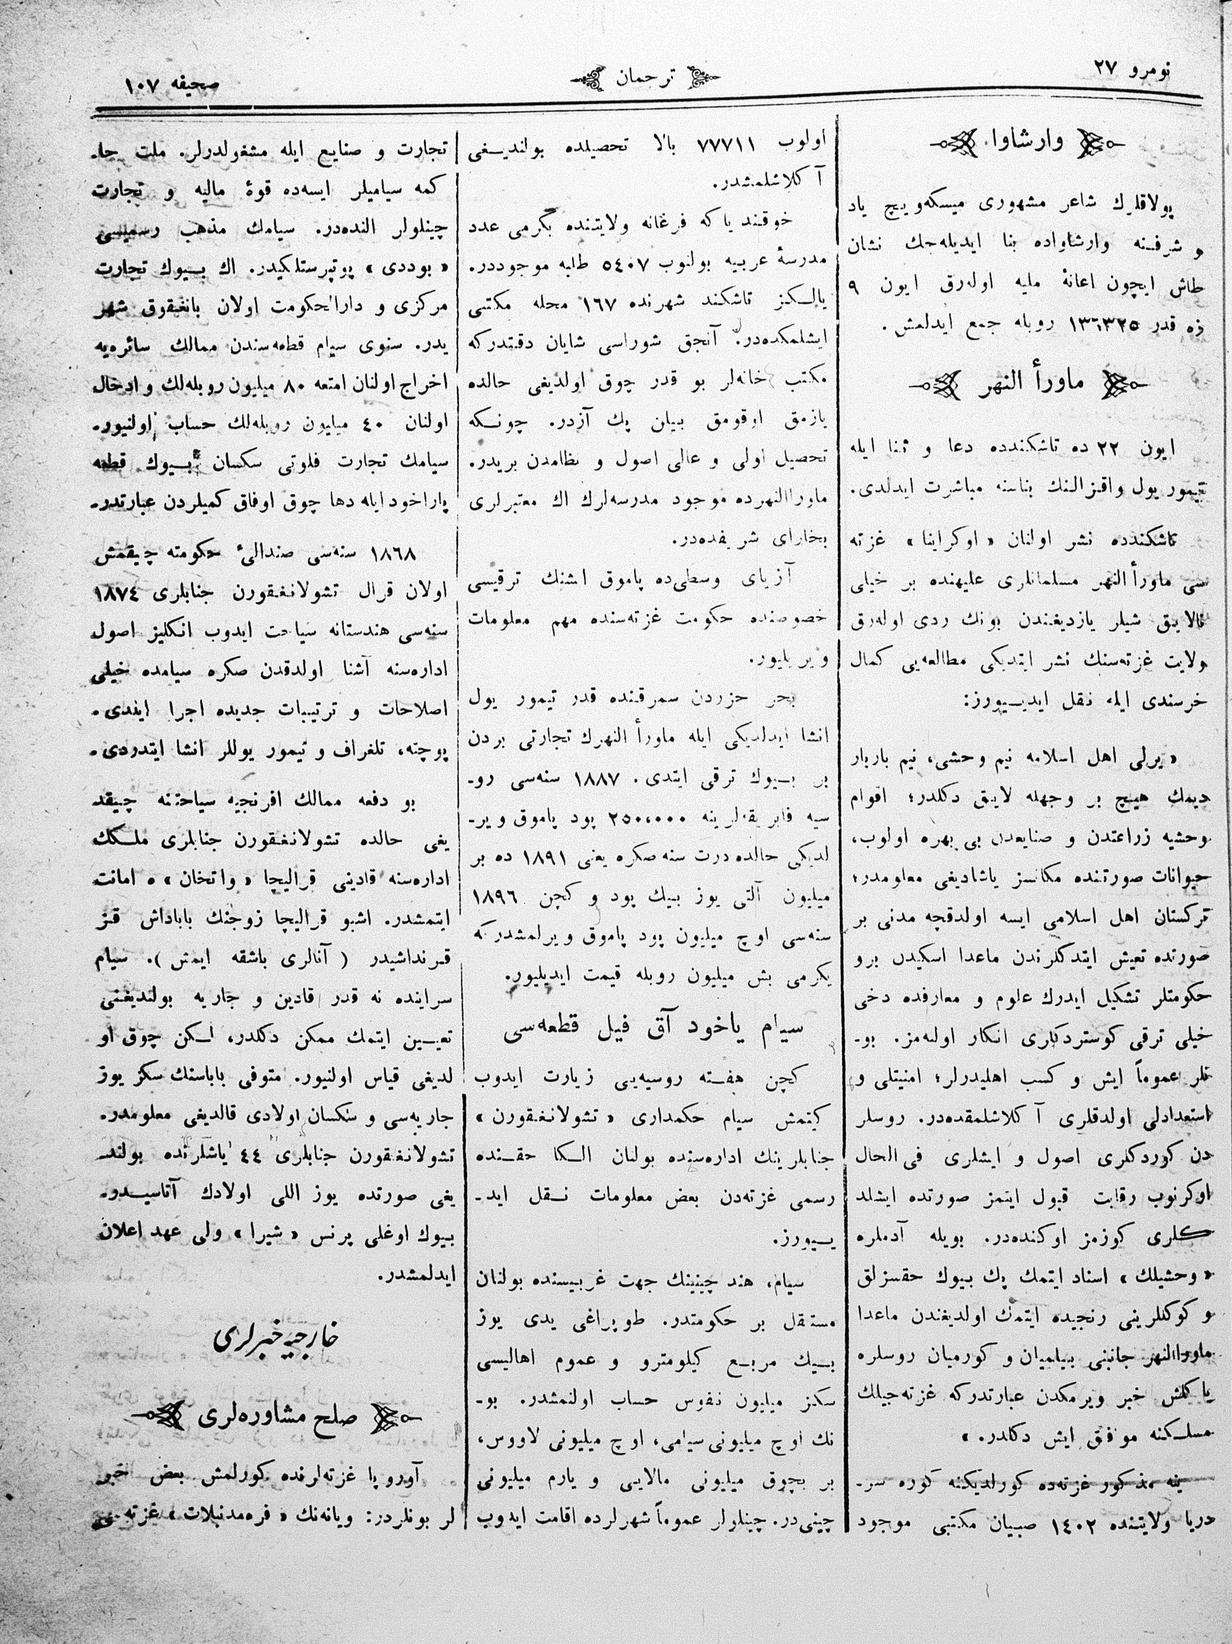 نومرو ٢٧
ترجمان
صحيفه ١٠٧
وارشاوا.
پولاقلرك شاعر مشهورى ميسكه‌ويچ ياد
و شرفنه وارشاواده بنا ايديله‌جك نشان
طاش ايچون اعانهٔ مليه اوله‌رق ايون ٩
زه قدر ١٣٦٣٢٥ روبله جمع ايدلمش.
ماورأ النهر
ايون ٢٢ ده تاشكندده دعا و ثنا ايله
تيمور يول واقزالنك بناسنه مباشرت ايدلدى.
تاشكندده نشر اولنان « اوكراينا » غزته
سى ماورأ النهر مسلمانلرى عليهنده بر خيلى
نالايق شيلر يازديغندن بونك ردى اوله‌رق
ولايت غزته‌سنك نشر ايتديكى مطالعه‌يى كمال
خرسندى ايله نقل ايديورز:
« يرلى اهل اسلامه نيم وحشى، نيم باربار
ديمك هيچ بر وجهله لايق دكلدر؛ اقوام
وحشيه زراعتدن و صنايعدن بى بهره اولوب،
حيوانات صورتنده مكانسز ياشاديغى معلومدر؛
تركستان اهل اسلامى ايسه اولدقچه مدنى بر
صورنده تعيش ايتدكلرندن ماعدا اسكيدن برو
حكومتلر تشكيل ايدرك علوم و معارفده دخى
خيلى ترقى كوستردكلرى انكار اولنه‌مز. بو-
نلر عموماً ايش و كسب اهليدرلر؛ امنيتلى و
استعدادلى اولدقلرى آكلاشلمقده‌در. روسلر
دن كوردكلرى اصول و ايشلرى فى الحال
اوكرنوب رقابت قبول ايتمز صورتده ايشلد
كلرى كوزمز اوكنده‌در. بويله آدملره
« وحشيلك » اسناد ايتمك پك بيوك حقسزلق
و كوكللرينى رنجيده ايتمك اولديغندن ماعدا
ماوراالنهر جانبنى بيلميان و كورميان روسلره
ياكلش خبر ويرمكدن عبارتدركه غزته‌جيلك
مسلكنه موافق ايش دكلدر. »
ينه مذكور غزته‌ده كورلديكنه كوره سر-
دريا ولايتنده ١٤٠٢ صبيان مكتبى موجود
اولوب ٧٧٧١١ بالا تحصيلده بولنديغى
آكلاشلمشدر.
خوقند ياكه فرغانه ولايتنده يكرمى عدد
مدرسهٔ عربيه بولنوب ٥٤٠٧ طلبه موجوددر.
يالكز تاشكند شهرنده ١٦٧ محله مكتبى
ايشلمكده‌در. آنجق شوراسى شايان دقتدركه
مكتب خانه‌لر بو قدر چوق اولديغى حالده
يازمق اوقومق بيلن پك آزدر. چونكه
تحصيل اولى و عالى اصول و نظامدن بريدر.
ماوراالنهرده موجود مدرسه‌لرك اك معتبرلرى
بخاراى شريفده‌در.
آزياى وسطى‌ده پاموق ايشنك ترقيسى
خصوصنده حكومت غزته‌سنده مهم معلومات
ويريليور.
بحر حزردن سمرقنده قدر تيمور يول
انشا ايدلديكى ايله ماورأ النهرك تجارتى بردن
بر بيوك ترقى ايتدى. ١٨٨٧ سنه‌سى رو-
سيه فابريقه‌لرينه ٢٥٠،٠٠٠ پود پاموق وير-
لديكى حالده درت سنه صكره يعنى ١٨٩١ ده بر
ميليون آلتى يوز بيك پود و كچن ١٨٩٦
سنه‌سى اوچ ميليون پود پاموق ويرلمشدركه
يكرمى بش ميليون روبله قيمت ايديليور.
سيام ياخود آق فيل قطعه‌سى
كچن هفته روسيه‌يى زيارت ايدوب
كيتمش سيام حكمدارى « تشولانغقورن »
جنابلرينك اداره‌سنده بولنان الكا حقنده
رسمى غزته‌دن بعض معلومات نقل ايد-
يورز.
سيام، هند چينينك جهت غربيسنده بولنان
مستقل بر حكومتدر. طوپراغى يدى يوز
بيك مربع كيلومترو و عموم اهاليسى
سكز ميليون نفوس حساب اولنمشدر. بو-
نك اوچ ميليونى سيامى، اوچ ميليونى لاووس،
بر بچوق ميليونى مالايى و يارم ميليونى
چينى‌در. چينلولر عموماً شهرلرده اقامت ايدوب
تجارت و صنايع ايله مشغولدرلر. ملت حا-
كمه سياميلر ايسه‌ده قوهٔ ماليه و تجارت
چينلولر النده‌در. سيامك مذهب رسميسى
« بوددى » پوتپرستلكيدر. اك بيوك تجارت
مركزى و دارالحكومت اولان بانغقوق شهر
يدر. سنوى سيام قطعه‌سندن ممالك سائره‌يه
اخراج اولنان امتعه ٨٠ ميليون روبله‌لك و ادخال
اولنان ٤٠ ميليون روبله‌لك حساب اولنيور.
سيامك تجارت فلوتى سكسان بيوك قطعه
پاراخود ايله دها چوق اوفاق كميلردن عبارتدر.
١٨٦٨ سنه‌سى صندالىٔ حكومته چيقمش
اولان قرال تشولانغقورن جنابلرى ١٨٧٤
سنه‌سى هندستانه سياحت ايدوب انكليز اصول
اداره‌سنه آشنا اولدقدن صكره سيامده خيلى
اصلاحات و ترتيبات جديده اجرا ايتدى.
پوچته، تلغراف و تيمور يوللر انشا ايتدردى.
بو دفعه ممالك افرنجيه سياحتنه چيقد
يغى حالده تشولانغقورن جنابلرى ملكك
اداره‌سنه قادينى قراليچا « واتخان » ه امانت
ايتمشدر. اشبو قراليچا زوجنك باباداش قز
قرنداشيدر ( آنالرى باشقه ايمش ). سيام
سراينده نه قدر قادين و جاريه بولنديغنى
تعيين ايتمك ممكن دكلدر، لكن چوق او
لديغى قياس اولنيور. متوفى باباسنك سكز يوز
جاريه‌سى و سكسان اولادى قالديغى معلومدر.
تشولانغقورن جنابلرى ٤٤ ياشلرنده بولند
يغى صورتده يوز اللى اولادك آتاسيدر.
بيوك اوغلى پرنس « شيرا » ولى عهد اعلان
ايدلمشدر.
خارجيه خبرلرى
صلح مشاوره‌لرى
آوروپا غزته‌لرنده كورلمش بعض خبر
لر بونلردر: ويانه‌نك « فره‌مدنبلات » غزته‌سى